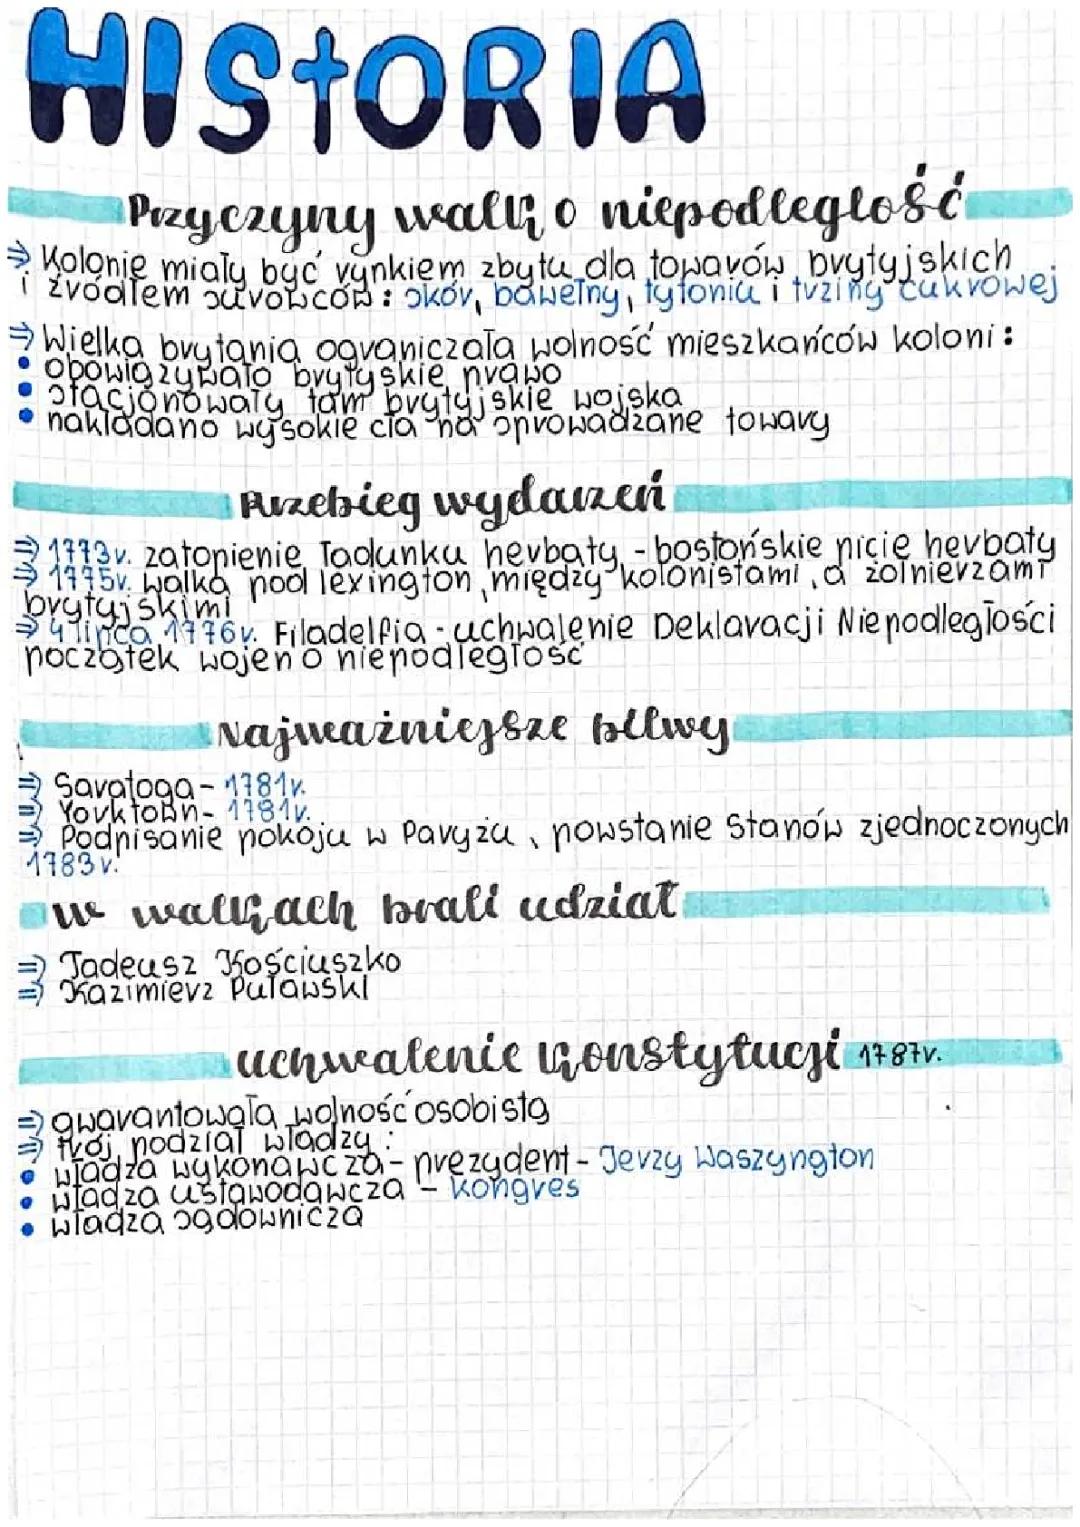 HIStORIA
Przyczyny walk o niepodległość
⇒ Kolonie miały być rynkiem zbytu dla towarów brytyjskich
i źródłem surowców: skór, bawełny, tytoniu i trziny cukrowej
⇒ Wielka brytania ograniczała wolność mieszkańców koloni:
• obowiązywało brytyskie prawo
• stacjonowały tam brytyjskie wojska
• nakładano wysokie cła na sprowadzane towary
Przebieg wydarzeń
⇒ 1773r. zatopienie ładunku herbaty - bostońskie picie herbaty
⇒ 1775r. walka pod lexington, między kolonistami, a żołnierzami
brytyjskimi
⇒ 4 lipca 1776r. Filadelfia - uchwalenie Deklaracji Niepodległości
początek wojen o niepodległość
Najważniejsze bitwy
⇒ Saratoga - 1781r.
⇒ Yorktown - 1781r.
⇒ Podpisanie pokoju w Paryżu, powstanie Stanów zjednoczonych
1783r.
w walkach brali udział
⇒ Tadeusz Kościuszko
⇒ Kazimierz Puławski
uchwalenie konstytucji 1787r.
⇒ gwarantowała wolność osobistą
⇒ trój podział władzy:
• władza wykonawcza - prezydent - Jerzy Waszyngton
• władza ustawodawcza - kongres
• władza sądownicza